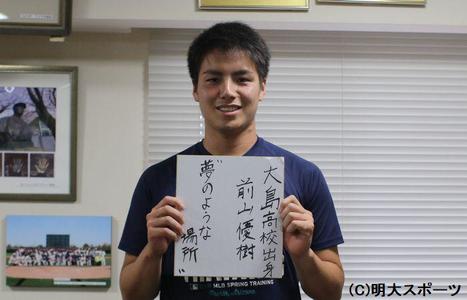 大島高校出身
前山優樹
"夢のような
場所"
MLB SPRING TRAINING
(C)明大スポーツ